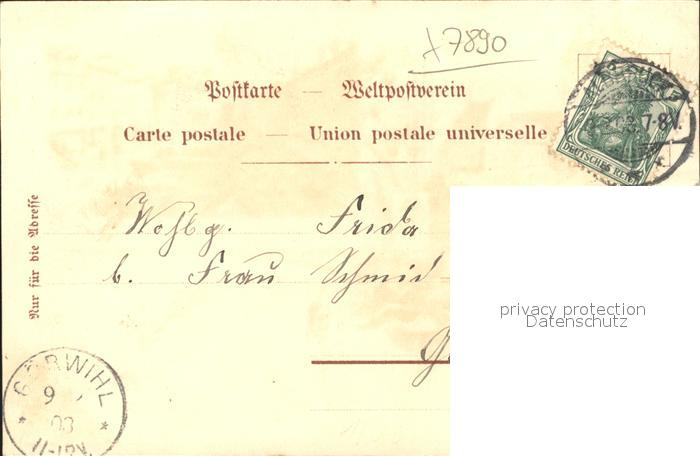 +7890
Postkarte — Weltpostverein
Carte postale — Union postale universelle
7-8V.
DEUTSCHES REICH
Nur für die Adresse
Wohlg. Frida
b. Frau Schmid
privacy protection
Datenschutz
GÖRWIHL
9
03
11-12V